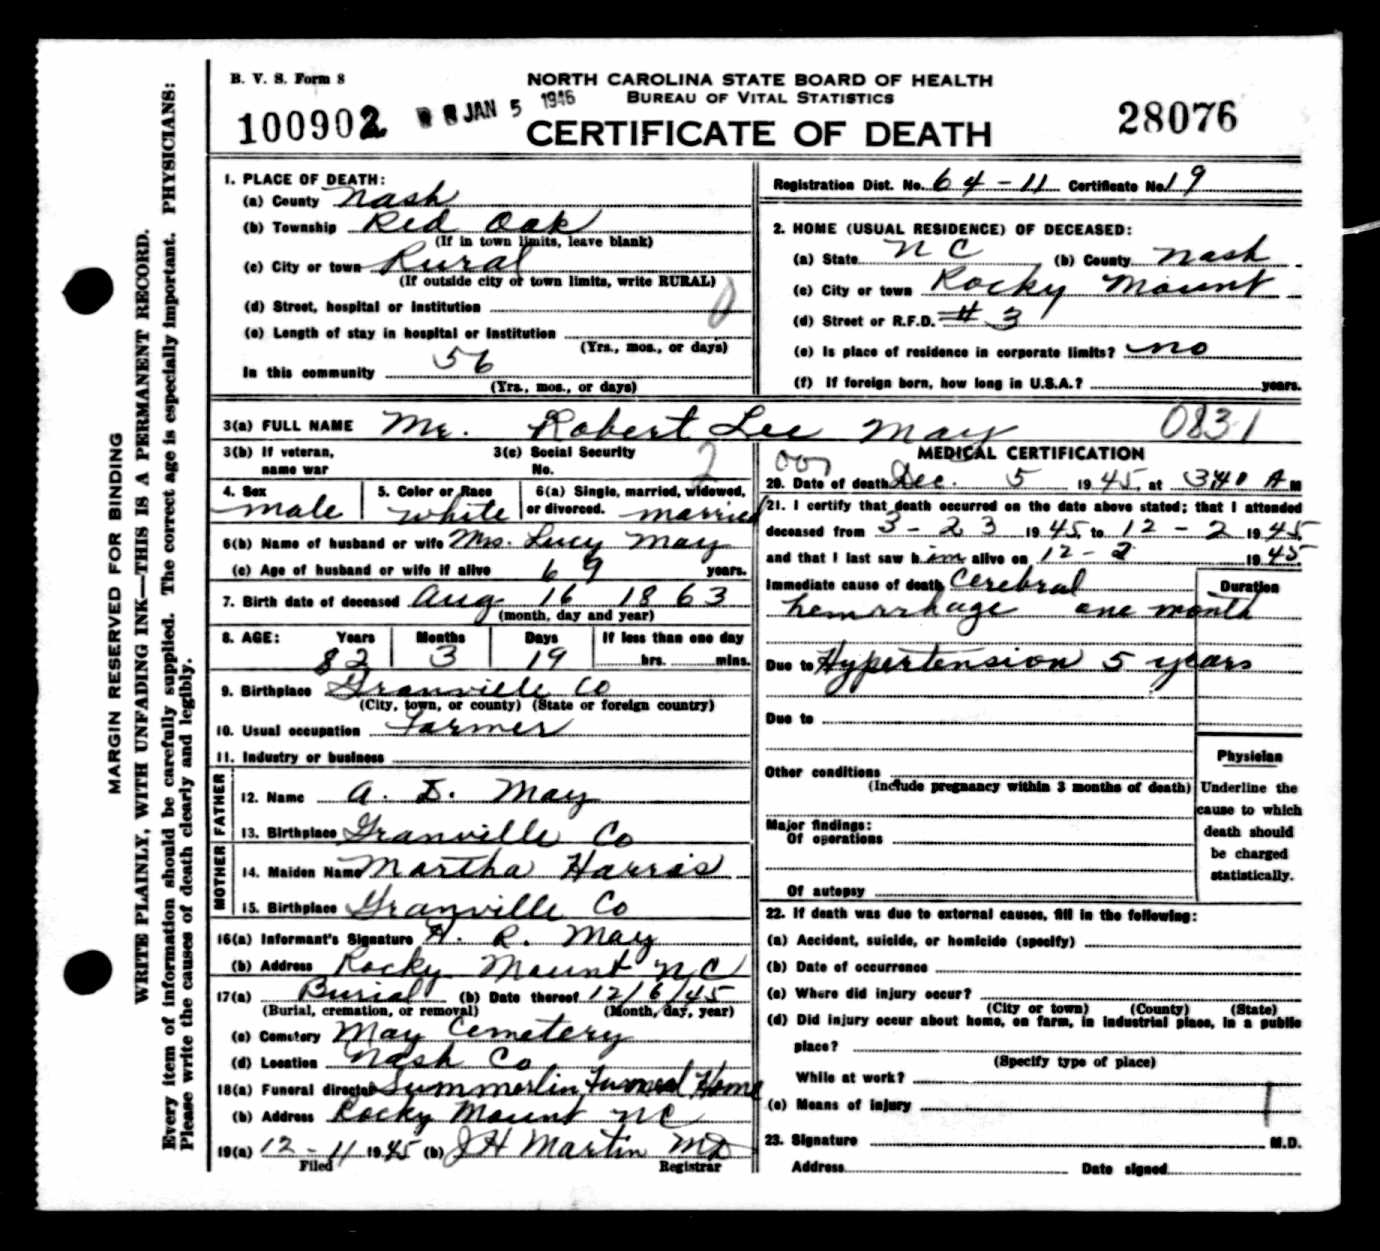 B. V. S. Form 8
NORTH CAROLINA STATE BOARD OF HEALTH
BUREAU OF VITAL STATISTICS
CERTIFICATE OF DEATH
100902
JAN 5 1946
28076
MARGIN RESERVED FOR BINDING
WRITE PLAINLY, WITH UNFADING INK—THIS IS A PERMANENT RECORD.
Every item of information should be carefully supplied. The correct age is especially important. PHYSICIANS:
Please write the causes of death clearly and legibly.
1. PLACE OF DEATH:
(a) County Nash
(b) Township Red Oak
(If in town limits, leave blank)
(c) City or town Rural
(If outside city or town limits, write RURAL)
(d) Street, hospital or institution
(e) Length of stay in hospital or institution
(Yrs., mos., or days)
In this community 56
(Yrs., mos., or days)
Registration Dist. No. 64-11 Certificate No. 19
2. HOME (USUAL RESIDENCE) OF DECEASED:
(a) State N C (b) County Nash
(c) City or town Rocky Mount
(d) Street or R.F.D. # 3
(e) Is place of residence in corporate limits? no
(f) If foreign born, how long in U.S.A.? years.
3(a) FULL NAME Mr. Robert Lee May 0831
3(b) If veteran, name war
3(c) Social Security No.
4. Sex male
5. Color or Race white
6(a) Single, married, widowed, or divorced. married
6(b) Name of husband or wife Mrs. Lucy May
(c) Age of husband or wife if alive 69 years.
7. Birth date of deceased Aug 16 1863
(month, day and year)
8. AGE: Years Months Days If less than one day
82 3 19 hrs. mins.
9. Birthplace Granville Co
(City, town, or county) (State or foreign country)
10. Usual occupation Farmer
11. Industry or business
FATHER
12. Name A. D. May
13. Birthplace Granville Co
MOTHER
14. Maiden Name Martha Harris
15. Birthplace Granville Co
16(a) Informant's Signature H. R. May
(b) Address Rocky Mount N C
17(a) Burial (b) Date thereof 12/6/45
(Burial, cremation, or removal) (Month, day, year)
(c) Cemetery May Cemetery
(d) Location Nash Co
18(a) Funeral director Summerlin Funeral Home
(b) Address Rocky Mount N C
19(a) 12-11 1945 (b) J H Martin MD
Filed Registrar
MEDICAL CERTIFICATION
20. Date of death Dec. 5 1945, at 340 A M
21. I certify that death occurred on the date above stated; that I attended
deceased from 3-23 1945, to 12-2 1945,
and that I last saw him alive on 12-2 1945.
Immediate cause of death Cerebral
hemrrhage one month
Duration
Due to Hypertension 5 years
Due to
Other conditions
(Include pregnancy within 3 months of death)
Major findings:
Of operations
Of autopsy
Physician
Underline the
cause to which
death should
be charged
statistically.
22. If death was due to external causes, fill in the following:
(a) Accident, suicide, or homicide (specify)
(b) Date of occurrence
(c) Where did injury occur?
(City or town) (County) (State)
(d) Did injury occur about home, on farm, in industrial place, in a public
place?
(Specify type of place)
While at work?
(e) Means of injury
23. Signature M.D.
Address Date signed